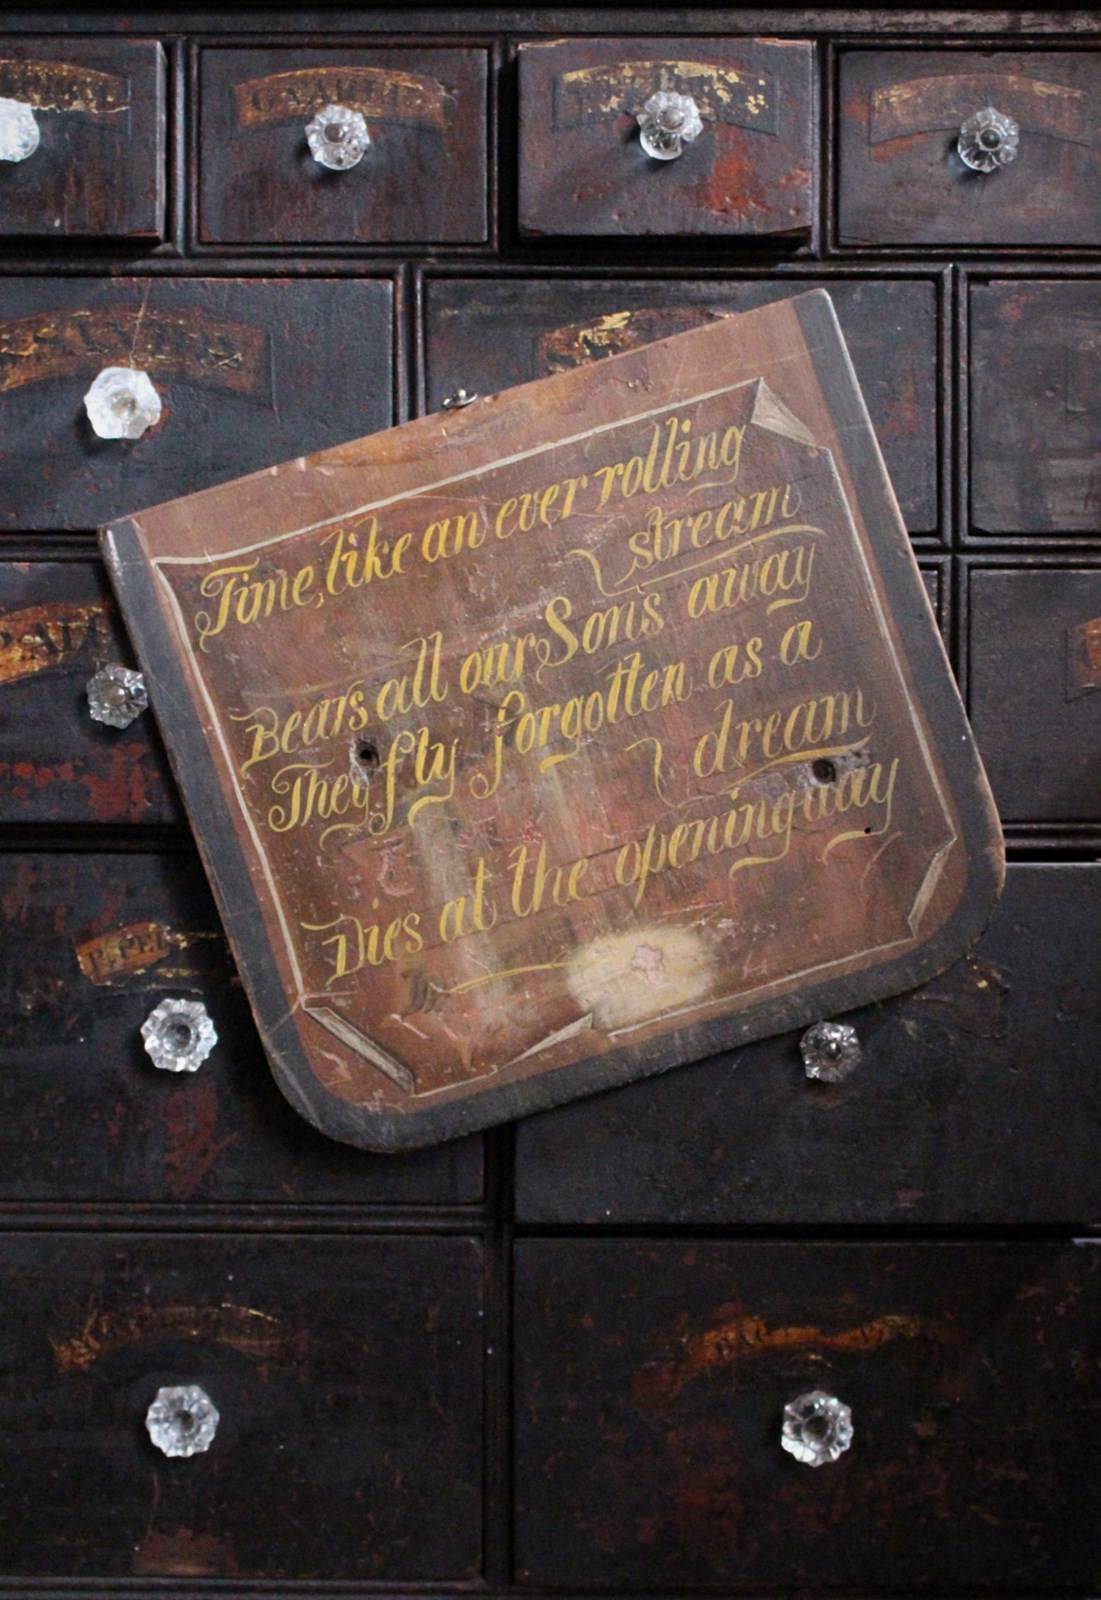 Time, like an ever rolling
stream
Bears all our Sons away
They fly forgotten as a
dream
Dies at the opening day